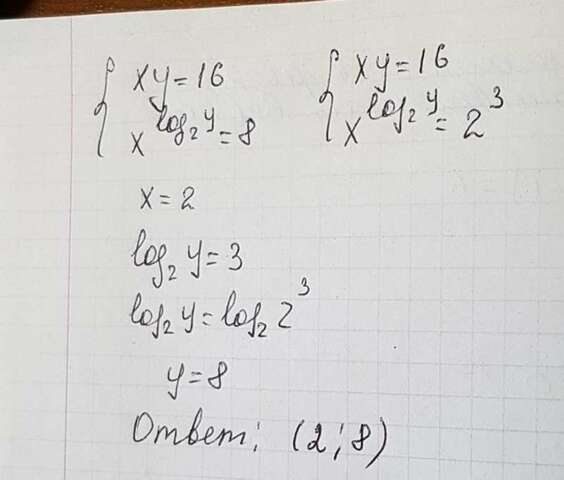 { xy = 16
x^{log₂ y} = 8
{ xy = 16
x^{log₂ y} = 2³
x = 2
log₂ y = 3
log₂ y = log₂ 2³
y = 8
Ответ: (2; 8)